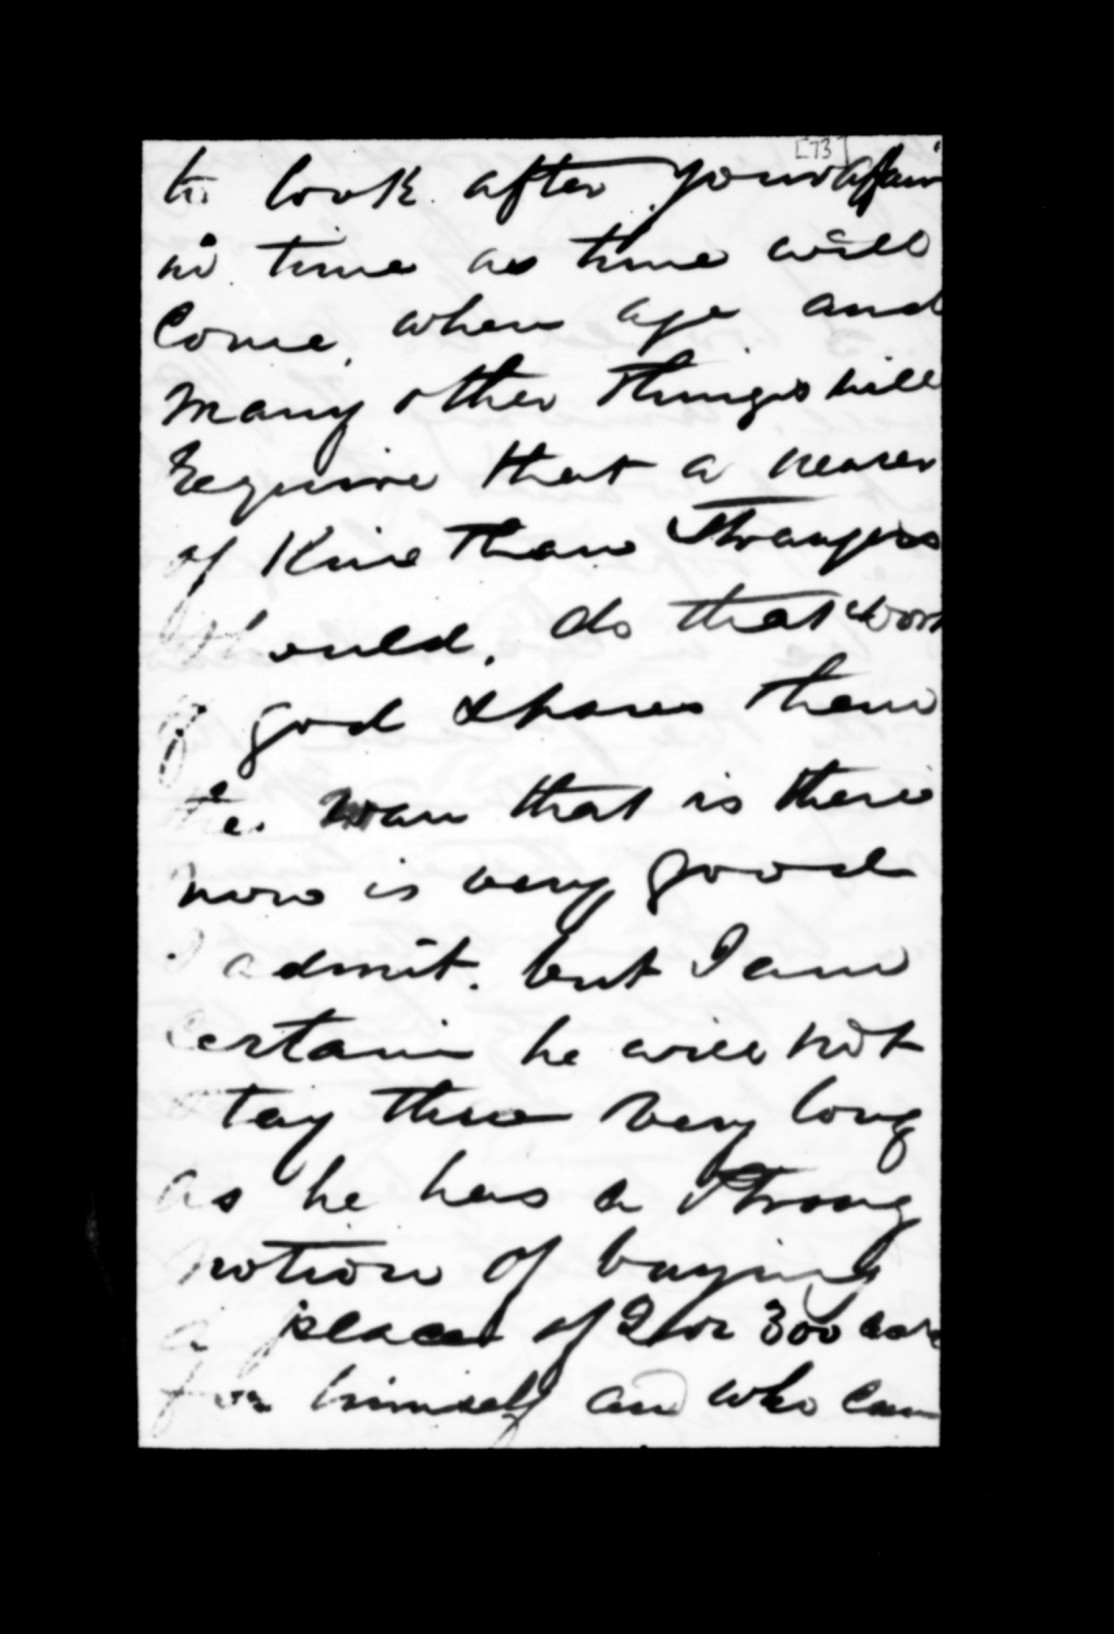 [73]
to look after your affair
in time as time will
Come, when age and
many other things will
Require that a nearer
of Kine than Strangers
should, do that work
if god spares them
the man that is there
now is very good
I admit. but I am
certain he will not
stay there very long
as he has a strong
notion of buying
a place of 2 or 300 acre
for himself and who can